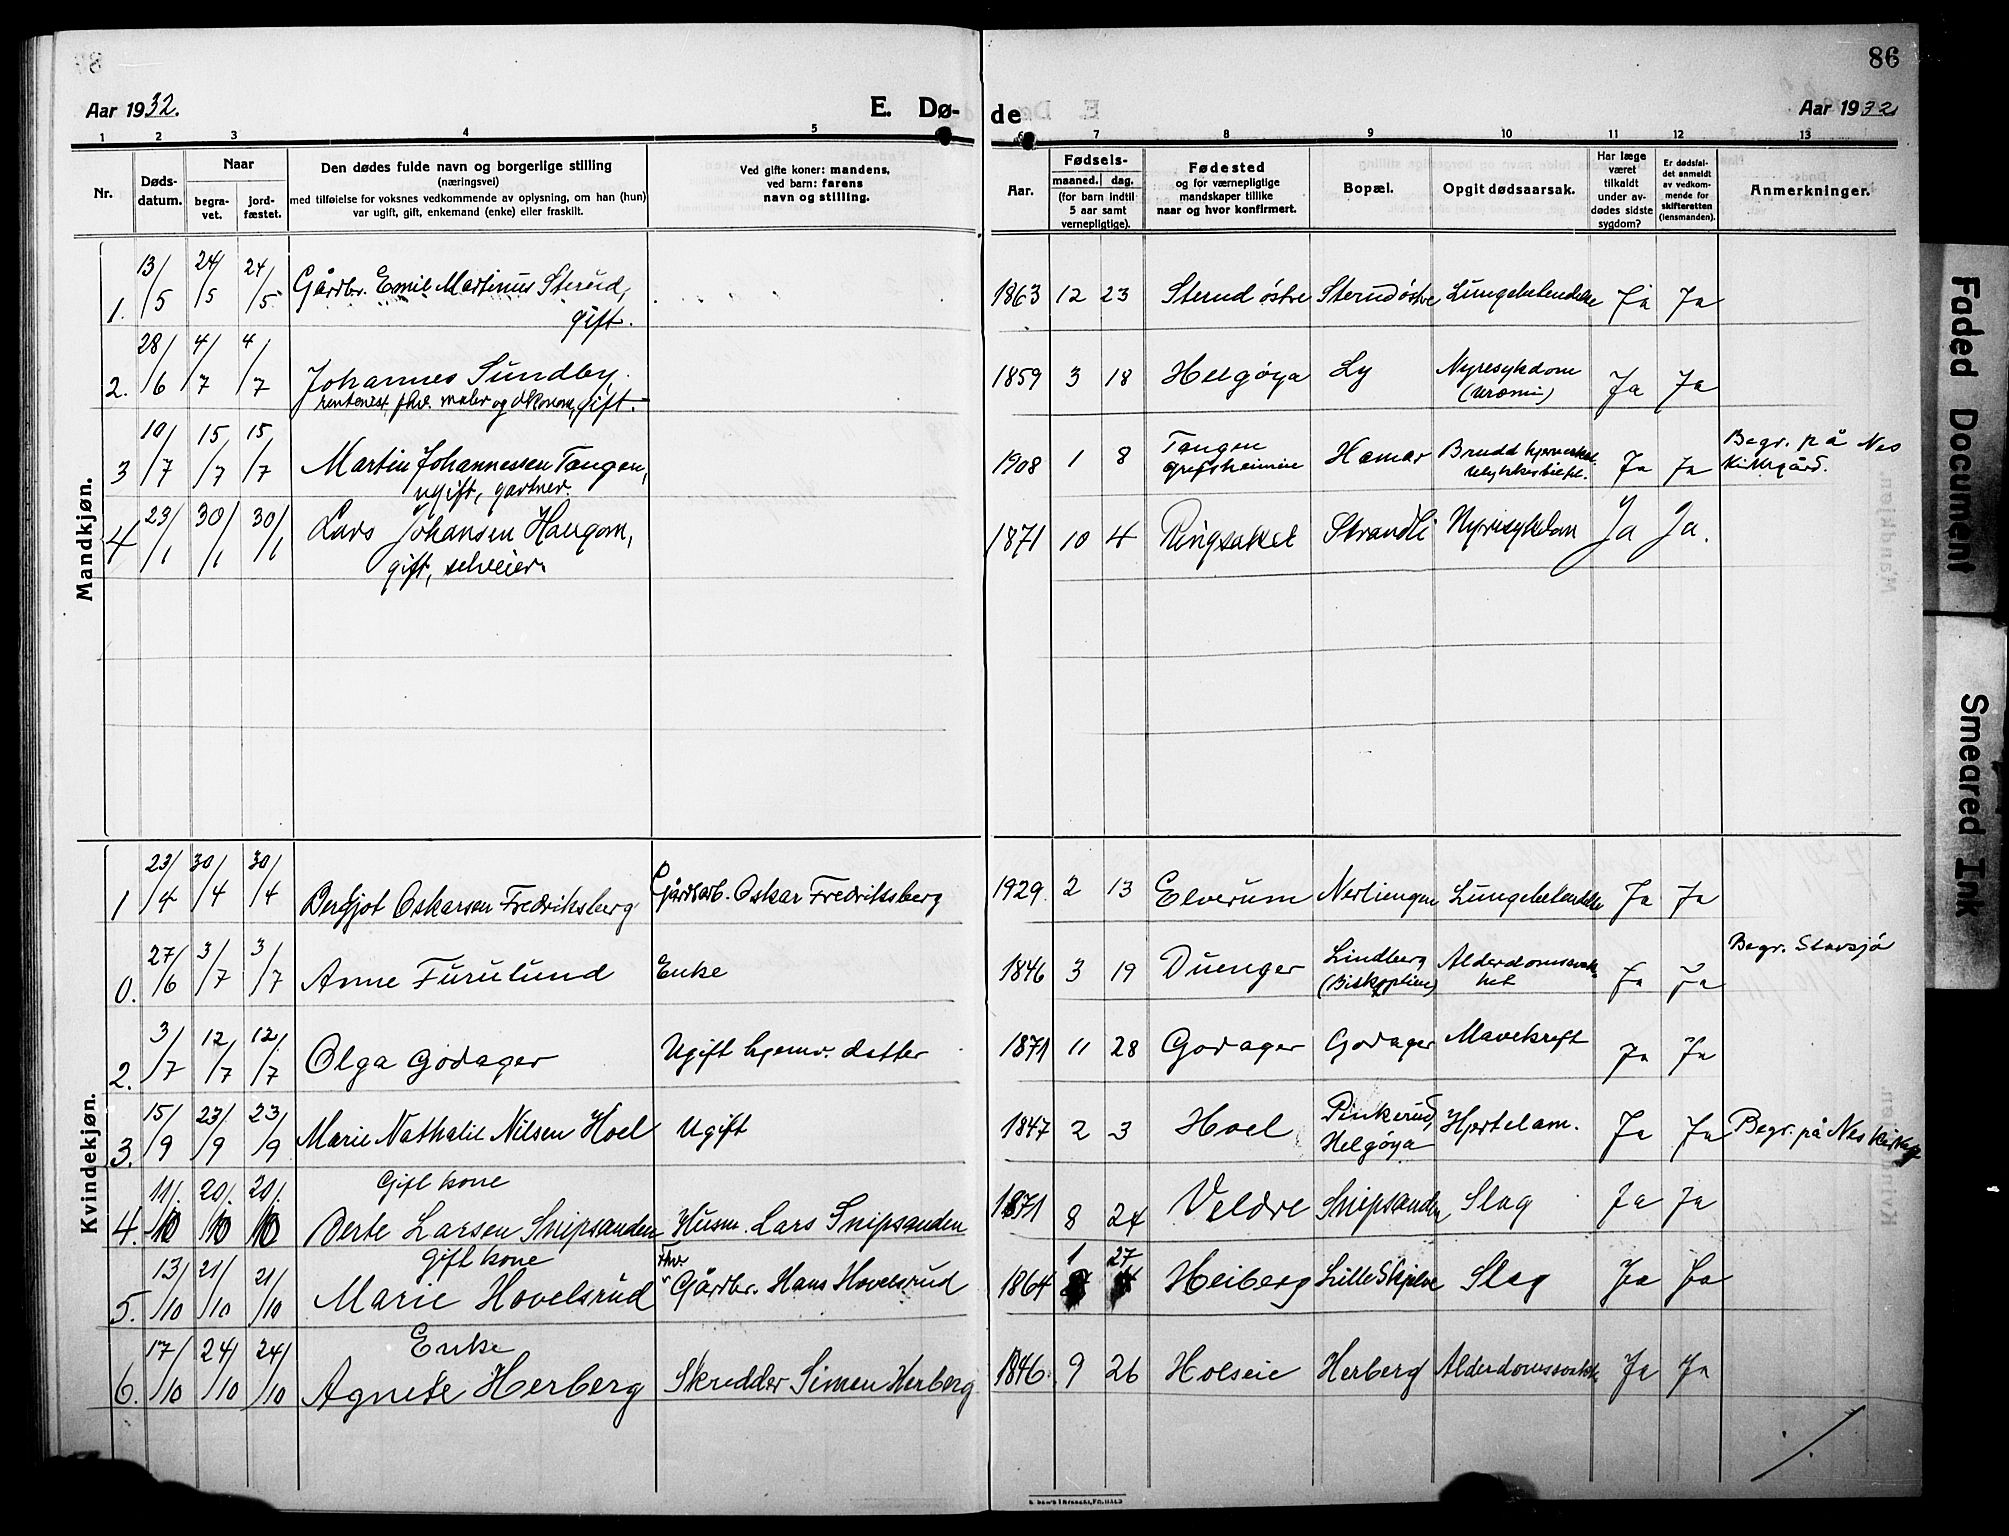 86
Aar 1932.
E. Dø-
de
Aar 1932
1 2 3 4 5 6 7 8 9 10 11 12 13
Nr.
Døds-
datum.
Naar
begra-
vet.
jord-
fæstet.
Den dødes fulde navn og borgerlige stilling
(næringsvei)
med tilføielse for voksnes vedkommende av oplysning, om han (hun)
var ugift, gift, enkemand (enke) eller fraskilt.
Ved gifte koner: mandens,
ved barn: farens
navn og stilling.
Aar.
Fødsels-
maaned. dag.
(for barn indtil
5 aar samt
vernepligtige).
Fødested
og for værnepligtige
mandskaper tillike
naar og hvor konfirmert.
Bopæl.
Opgit dødsaarsak.
Har læge
været
tilkaldt
under av-
dødes sidste
sygdom?
Er dødsfal-
det anmeldt
av vedkom-
mende for
skifteretten
(lensmanden).
Anmerkninger.
Mandkjøn.
1. 13/5 24/5 24/5 Gårdbr. Emil Martinus Sterud,
gift.
1863 12 23 Sterud østre Sterud østre Lungebetendelse Ja Ja
2. 28/6 4/7 4/7 Johannes Sundby.
rentenist fhv. maler og økonom, gift.
1859 3 18 Helgøya Ly Nyresykdom
(uræmi) Ja Ja
3 10/7 15/7 15/7 Martin Johannessen Tangen,
ugift, gartner.
1908 1 8 Tangen
Hamar Brudd
Ja Ja Begr. på Nes
kirkegård.
4 23/1 30/1 30/1 Lars Johansen Haugom,
gift, selveier.
1871 10 4 Ringsaker Strandli Nyresykdom Ja Ja.
Kvindekjøn.
1 23/4 30/4 30/4 Bergjot Oskarsen Fredriksberg Gårdsarb. Oskar Fredriksberg
1929. 2 13 Elverum Nerliengen Lungebetendelse Ja Ja
0. 27/6 3/7 3/7 Anne Furulund Enke
1846 3 19 Duenger Lindberg
(Biskoplien) Alderdomssvak-
het Ja Ja Begr. Stavsjø
2. 3/7 12/7 12/7 Olga Godager Ugift hjemv. datter
1871 11 28 Godager Godager Mavekreft Ja Ja
3. 15/9 23/9 23/9 Marie Nathalie Nilsen Hoel Ugift
1847 2 3 Hoel Pinkerud,
Helgøya Hjertelam. Ja Ja Begr. på Nes
Gift kone
4. 11/10 20/10 20/10 Berte Larsen Snipsanden Husm. Lars Snipsanden
1871 8 24 Veldre Snipsanden Slag Ja Ja
gift kone
5. 13/10 21/10 21/10 Marie Hovelsrud Fhv. Gårdbr. Hans Hovelsrud
1864 1 27 Heiberg Lille Skjelve Slag Ja Ja
Enke
6. 17/10 24/10 24/10 Agnete Herberg Skredder Simen Herberg
1846. 9 26 Holseie Herberg Ja Ja
Faded Document
Smeared Ink